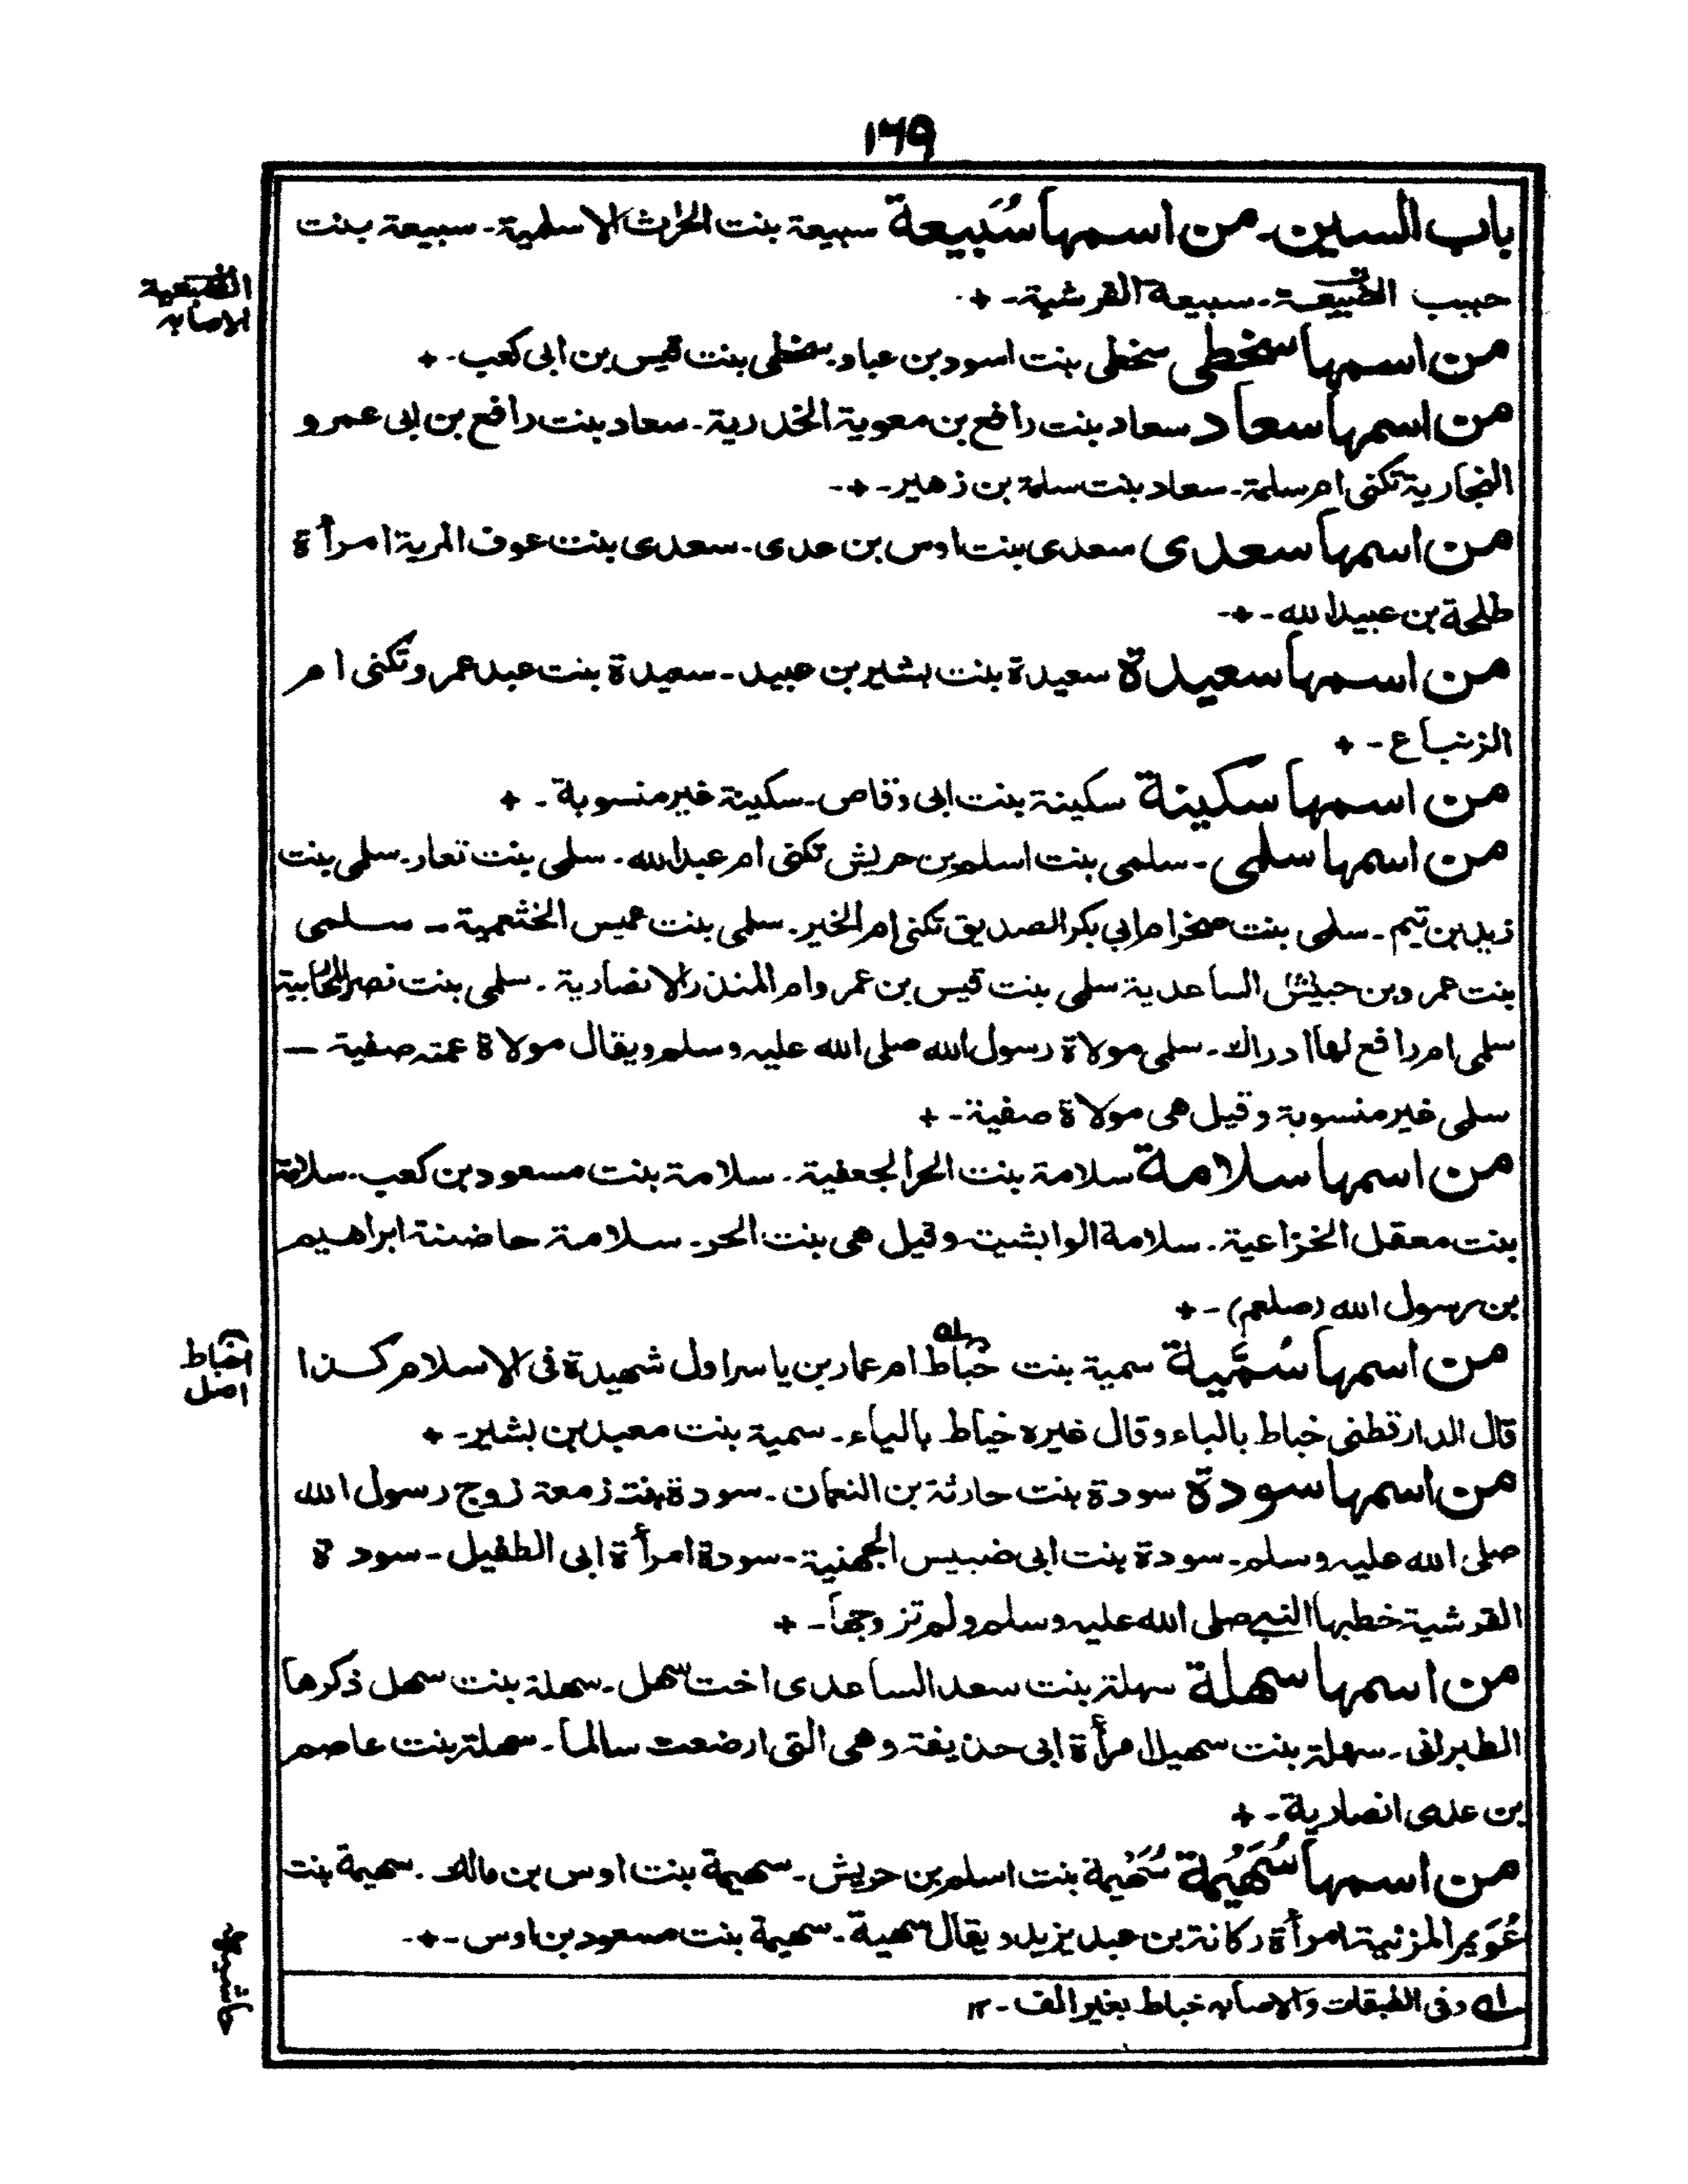 ١٦٩
باب السين۔ من اسمها سُبَيعة سبيعة بنت الحرث الاسلمية۔ سبيعة بنت
حبيب الضبيعة۔ سبيعة القرشية۔ +
الضبعية
الاصابه
من اسمها سخطى سخطى بنت اسود بن عباد۔ سخطى بنت قيس بن ابى كعب۔ +
من اسمها سعاد سعاد بنت رافع بن معوية الخدرية۔ سعاد بنت رافع بن ابى عمرو
النجارية تكنى ام سلمة۔ سعاد بنت سلمة بن زهير۔ +۔
من اسمها سعدى سعدى بنت اوس بن عدى۔ سعدى بنت عوف المرية امرأة
طلحة بن عبيد الله۔ +۔
من اسمها سعيدة سعيدة بنت بشير بن عبيد۔ سعيدة بنت عبد عمر وتكنى ام
الزنباع۔ +
من اسمها سكينة سكينة بنت ابى وقاص۔ سكينة غير منسوبة۔ +
من اسمها سلمى۔ سلمى بنت اسلم بن حريش تكنى ام عبد الله۔ سلمى بنت تعار۔ سلمى بنت
زيد بن تيم۔ سلمى بنت صخر ام ابي بكر الصديق تكنى ام الخير۔ سلمى بنت عميس الخثعمية۔ سلمى
بنت عمرو بن حبيش الساعدية سلمى بنت قيس بن عمر وام المنذر الانصارية۔ سلمى بنت نصر المحابية
سلمى ام رافع لها ادراك۔ سلمى مولاة رسول الله صلى الله عليه وسلم ويقال مولاة عمته صفية —
سلمى غير منسوبة وقيل هى مولاة صفية۔ +
من اسمها سلامة سلامة بنت الحر الجعفية۔ سلامة بنت مسعود بن كعب۔ سلامة
بنت معقل الخزاعية۔ سلامة الوابشية وقيل هى بنت الحر۔ سلامة حاضنة ابراهيم
بن رسول الله (صلعم)۔ +
من اسمها سُمَيّة سمية بنت خباط ام عمار بن ياسر اول شهيدة فى الاسلام كذا
اخباط
اصل
قال الدارقطنى خباط بالباء وقال غيره خياط بالياء۔ سمية بنت معبد بن بشير۔ +
من اسمها سودة سودة بنت حارثة بن النعمان۔ سودة بنت زمعة زوج رسول الله
صلى الله عليه وسلم۔ سودة بنت ابى ضبيس الجهنية۔ سودة امرأة ابى الطفيل۔ سودة
القرشية خطبها النبي صلى الله عليه وسلم ولم تزوجها۔ +
من اسمها سهلة سهلة بنت سعد الساعدى اخت سهل۔ سهلة بنت سهل ذكرها
الطبرانى۔ سهلة بنت سهيل امرأة ابى حذيفة وهى التى ارضعت سالما۔ سهلة بنت عاصم
بن عدى انصارية۔ +
من اسمها سُهَيْمَة سُهَيْمة بنت اسلم بن حريش۔ سهيمة بنت اوس بن مالك۔ سهيمة بنت
عُوَيمر المزنية امرأة ركانة بن عبد يزيد ويقال سهية۔ سهيمة بنت مسعود بن اوس۔ +۔
حاشيه
له وفى الطبقات والاصابه خباط بغير الف۔ ١٢